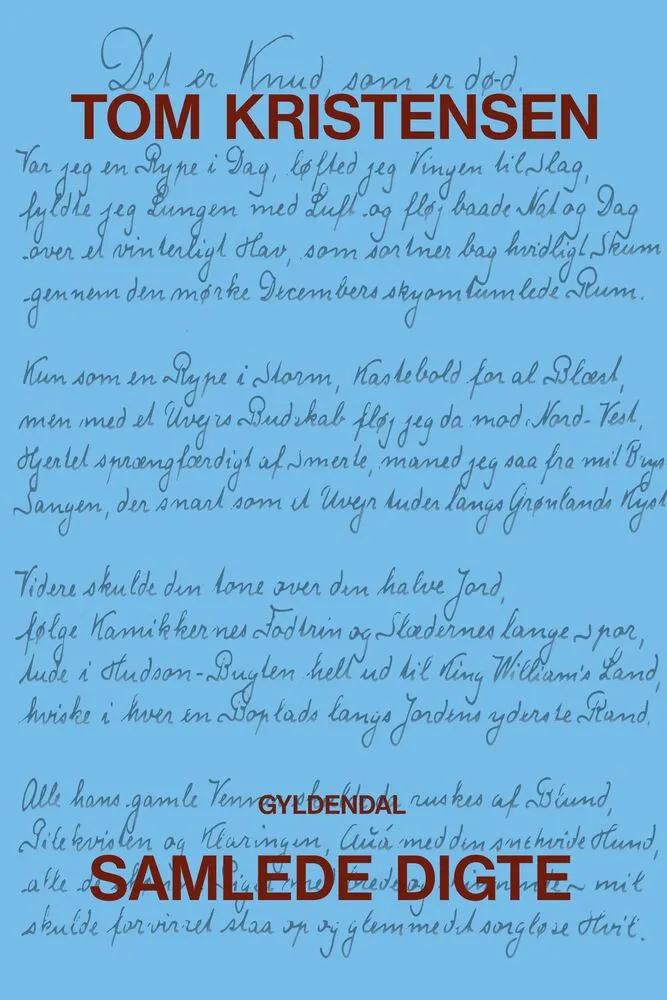 Det er Knud, som er død.
TOM KRISTENSEN
Var jeg en Rype i Dag, løfted jeg Vingen til Slag,
fyldte jeg Lungen med Luft og fløj baade Nat og Dag
over et vinterligt Hav, som sortner bag hvidligt Skum
gennem den mørke Decembers skyomtumlede Rum.
Kun som en Rype i Storm, Kastebold for al Blæst,
men med et Uvejrs Budskab fløj jeg da mod Nord-Vest,
Hjertet sprængfærdigt af Smerte, maned jeg saa fra mit Brys
Sangen, der snart som et Uvejr tuder langs Grønlands Kyst
Videre skulde den tone over den halve Jord,
følge Kamikkernes Fodtrin og Slædernes lange Spor,
tude i Hudson-Bugten helt ud til King William's Land,
hviske i hver en Boplads langs Jordens yderste Rand.
Alle hans gamle Venner skulde da ruskes af Blund,
GYLDENDAL
Pilekvisten og Klaringen, Auá med den snehvide Hund,
SAMLEDE DIGTE
alle de mit
skulde forvirret staa op og glemme det sorgløse Hvil.